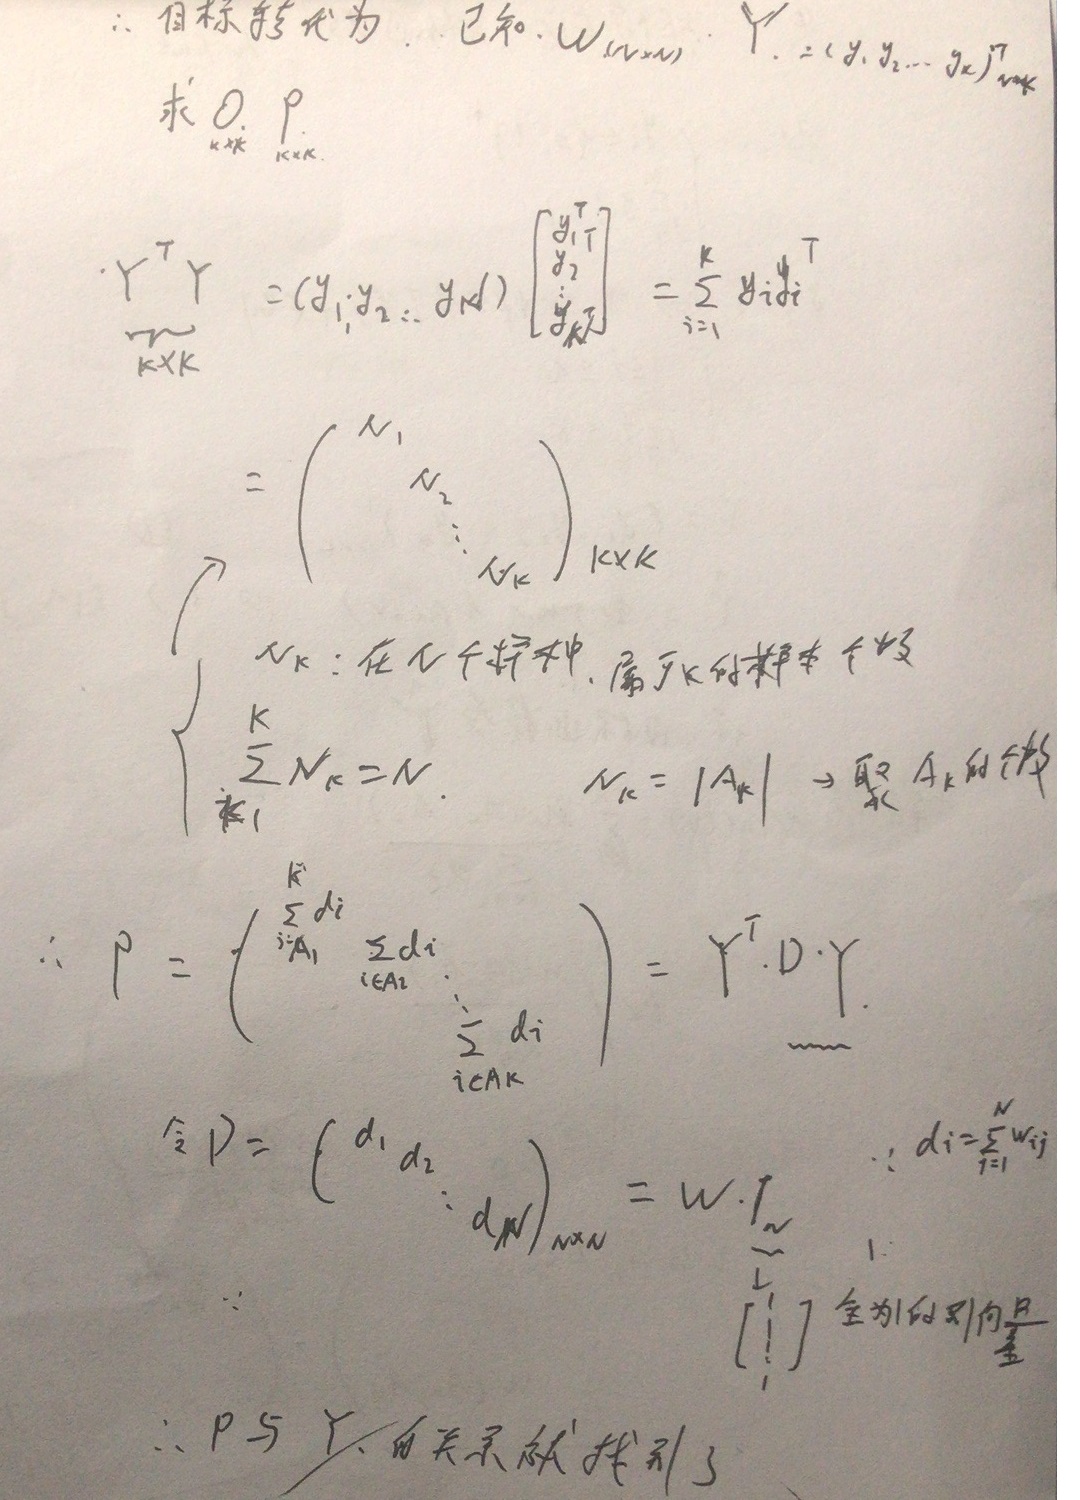 ∴ 目标转化为. 已知. W(N×N). Y. = (y₁ y₂ … y_K)ᵀ N×K
求 O. K×K P. K×K.
YᵀY K×K = (y₁, y₂ … y_N) [y₁ᵀ y₂ᵀ ⋮ y_Nᵀ] = ∑ᵢ₌₁ᴷ yᵢyᵢᵀ
= (N₁ N₂ ⋱ N_K) K×K
N_K : 在 N 个样本中, 属于K的样本个数
∑ᴷ N_K = N. N_K = |A_K| → 取 A_K 的个数
∴ P = (∑ i∈A₁ dᵢ ∑ i∈A₂ dᵢ ⋱ ∑ i∈A_K dᵢ) = Yᵀ·D·Y.
令 D = (d₁ d₂ ⋱ d_N) N×N = W·1_N ∵ dᵢ = ∑ⱼ₌₁ᴺ wᵢⱼ
[1 ⋮ 1] 全为1的列向量
∵
∴ P与Y.的关系就找到了